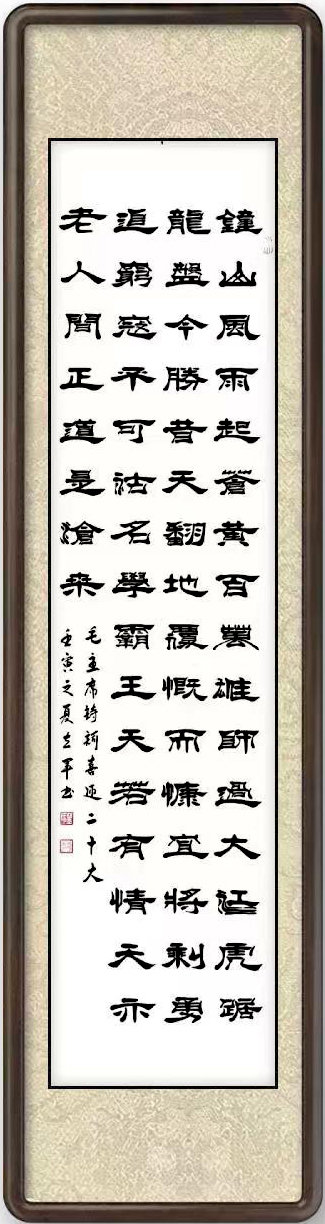 鐘山風雨起蒼黃百萬雄師過大江虎踞
龍盤今勝昔天翻地覆慨而慷宜將剩勇
追窮寇不可沽名學霸王天若有情天亦
老人間正道是滄桑
毛主席詩詞喜迎二十大
壬寅之夏军书